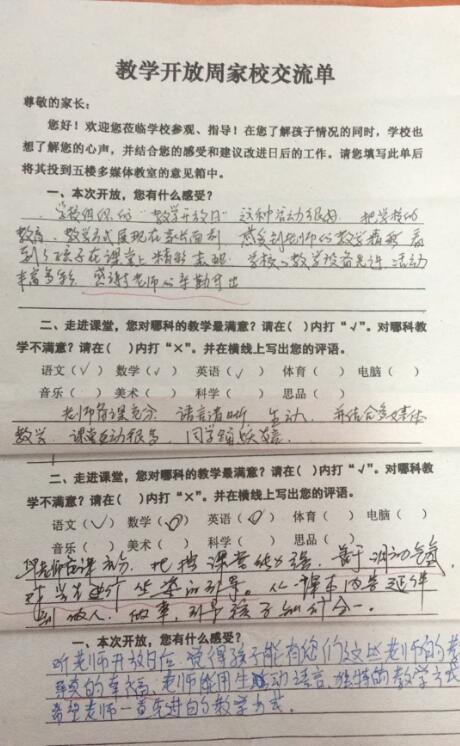 教学开放周家校交流单
尊敬的家长:
您好!欢迎您莅临学校参观、指导!在您了解孩子情况的同时,学校也
想了解您的心声,并结合您的感受和建议改进日后的工作。请您填写此单后
将其投到五楼多媒体教室的意见箱中。
一、本次开放,您有什么感受?
学校组织的“教学开放日”这种活动很好,把学校的
教育、教学方式展现在家长面前,感受到老师的教学精彩,看
到了孩子在课堂上精彩表现,学校的教学设备先进,活动
丰富多彩,感谢老师心辛勤付出
二、走进课堂,您对哪科的教学最满意?请在( )内打“√”。对哪科教
学不满意?请在( )内打“×”。并在横线上写出您的评语。
语文(√) 数学(√) 英语(√) 体育( ) 电脑( )
音乐( ) 美术( ) 科学( ) 思品( )
老师备课充分 语言清晰 生动,并结合多媒体
教学,课堂互动很多,同学踊跃
二、走进课堂,您对哪科的教学最满意?请在( )内打“√”。对哪科教
学不满意?请在( )内打“×”。并在横线上写出您的评语。
语文(√) 数学(√) 英语(√) 体育( ) 电脑( )
音乐( ) 美术( ) 科学( ) 思品( )
老师备课充分,把控课堂能力强,善于调动气氛,
对学生进行 的引导。从课本内容延伸
到做人、做事,引导孩子知行合一。
一、本次开放,您有什么感受?
听老师开放日后,觉得孩子能有您们这些老师的教
导真的幸福,老师能用生动语言、独特的教学方式
希望老师一直保持的教学方式。